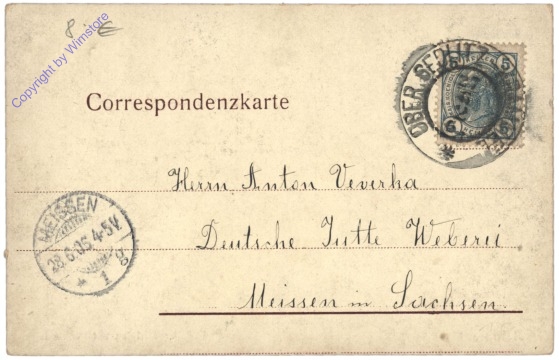 8 €
Copyright by Wimstore
Correspondenzkarte
OBER SEDLITZ
5 5
Herrn Anton Veverka
Deutsche Jutte Weberei
Meissen in Sachsen
MEISSEN
28.6.05.4-5V.
* 1 g